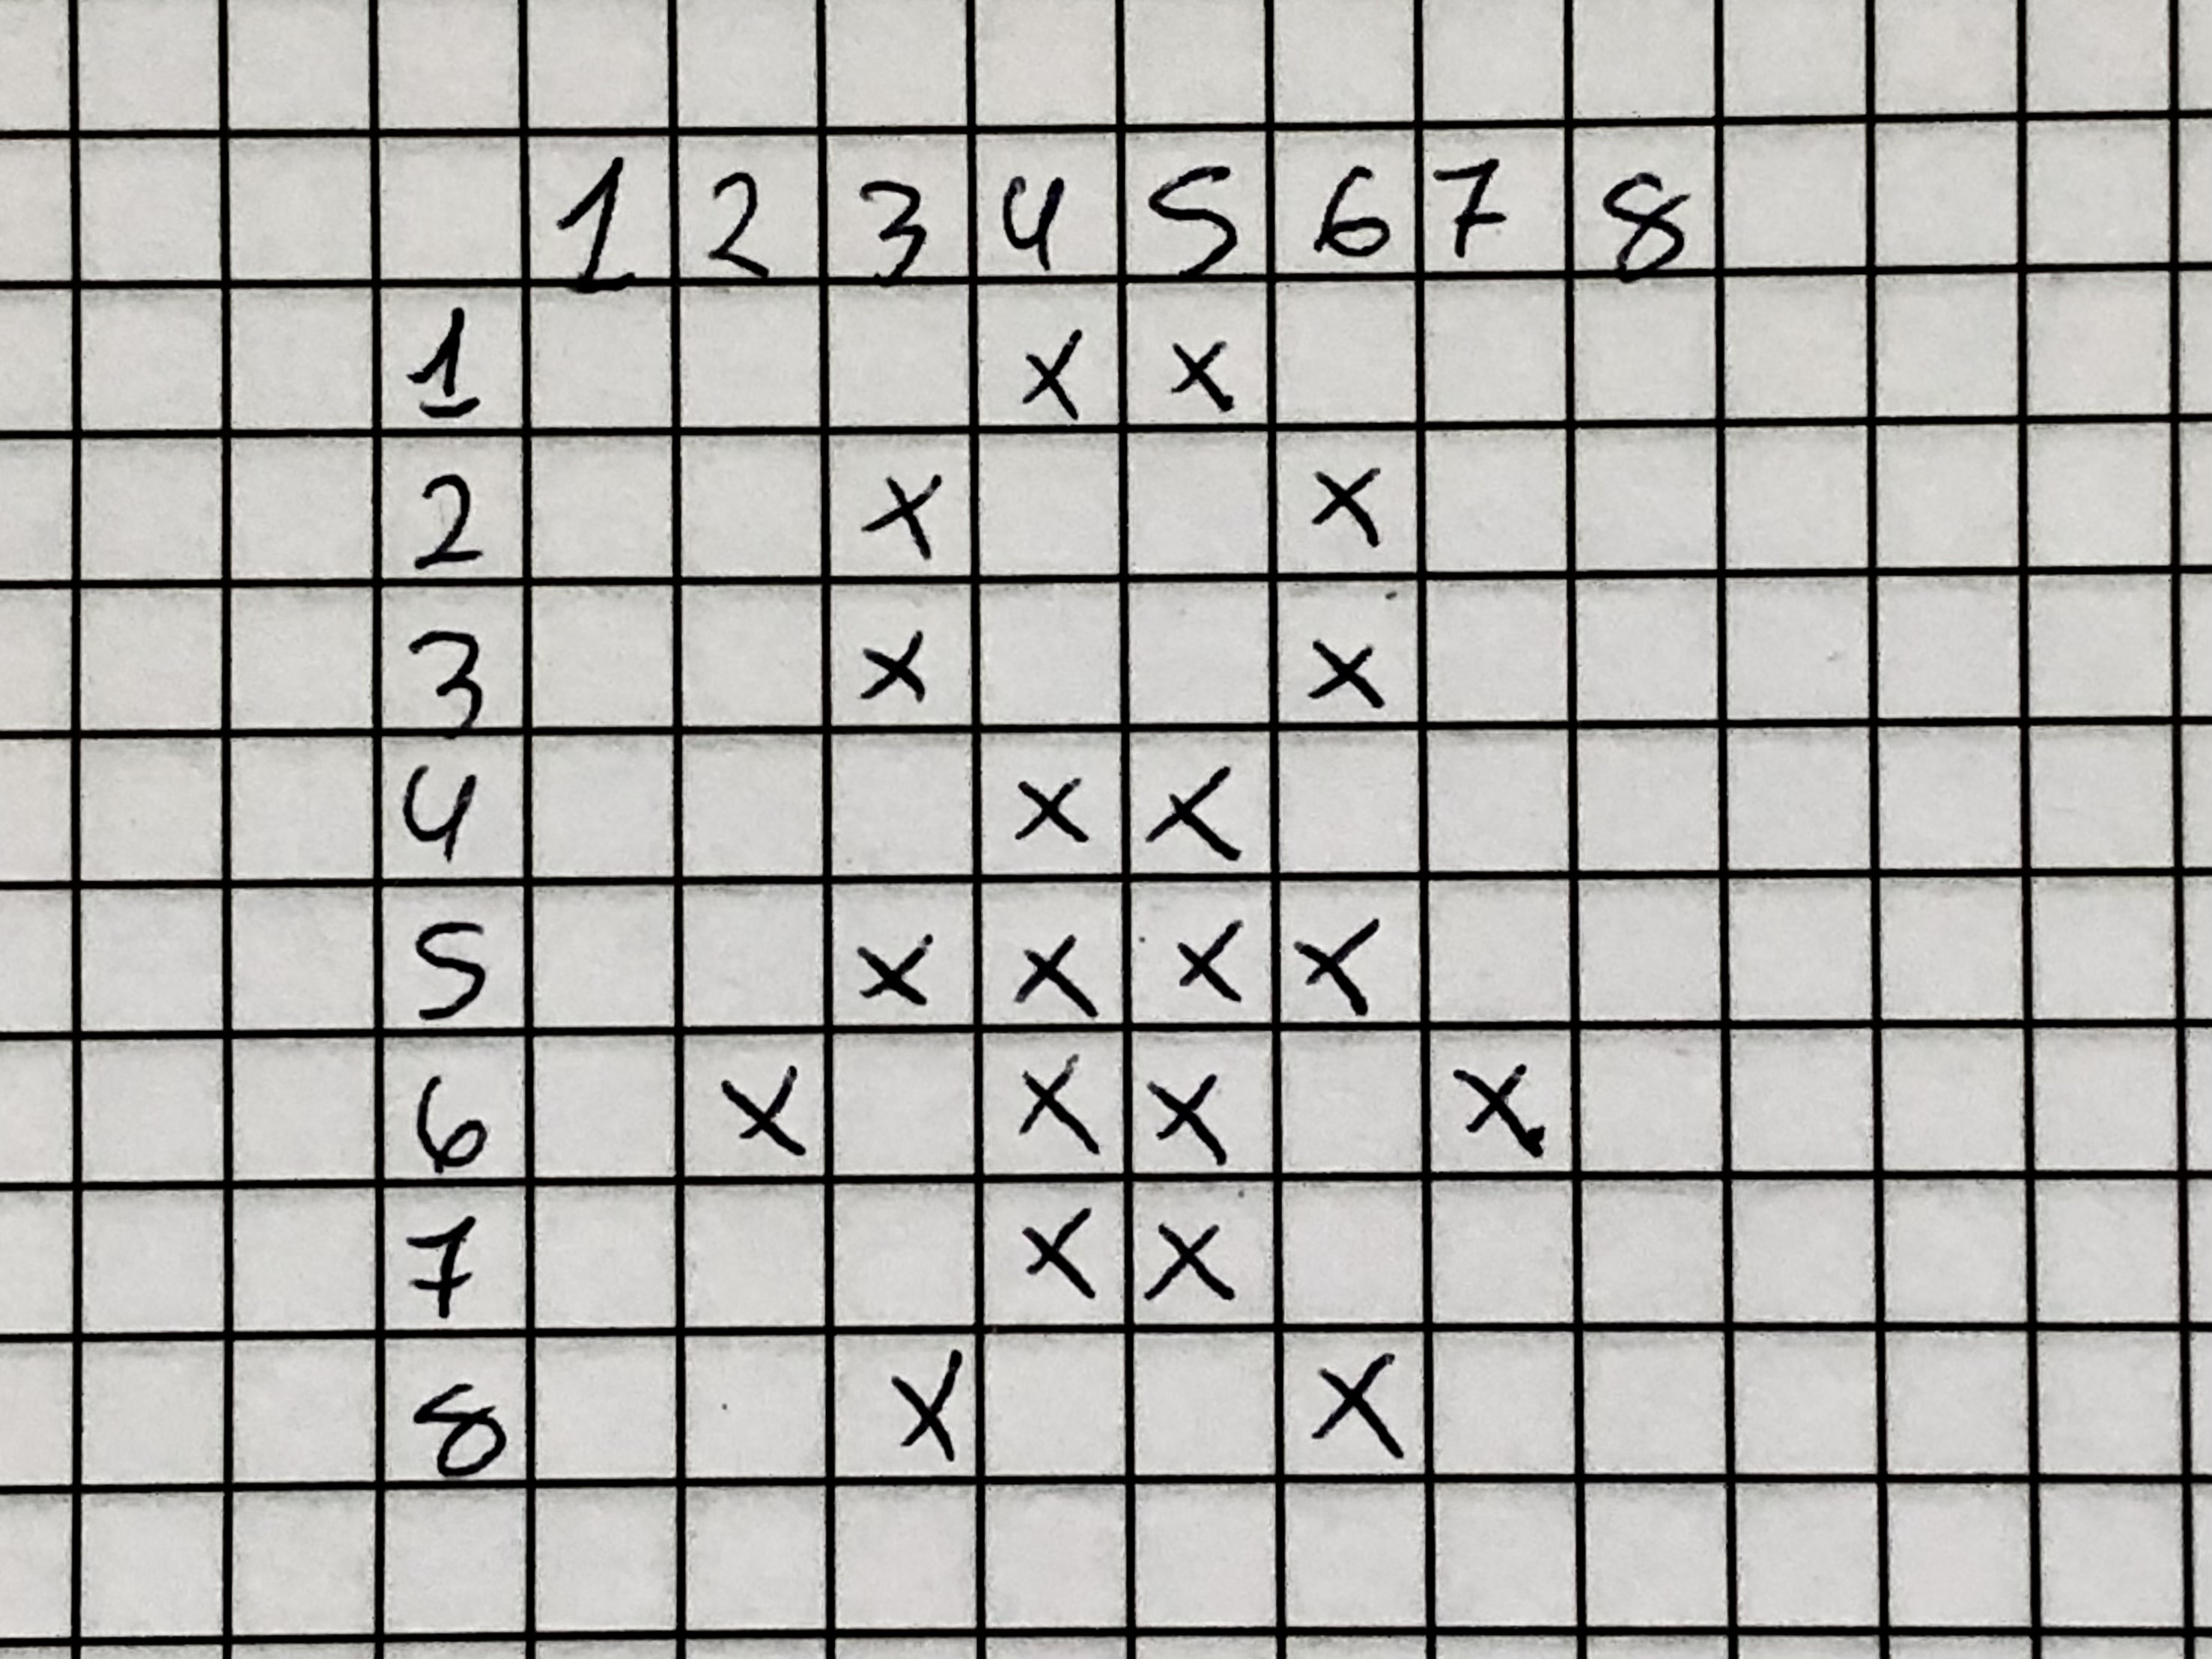 1 2 3 4 5 6 7 8
1 x x
2 x x
3 x x
4 x x
5 x x x x
6 x x x x
7 x x
8 x x